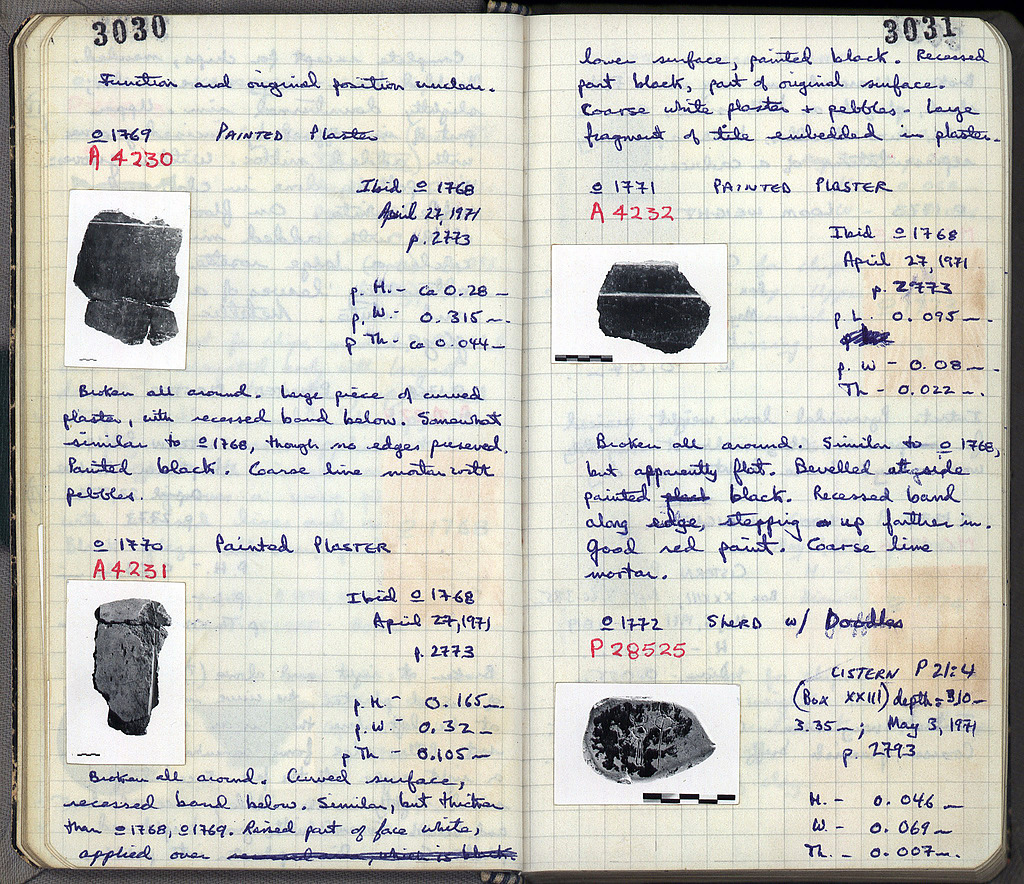 3030
Function and original position unclear.
o 1769 PAINTED Plaster
A 4230
Ibid o 1768
April 27, 1971
p. 2773
p. H. - ca 0.28 m
p. W. - 0.315 m.
p Th - ca 0.044 m.
Broken all around. Large piece of curved
plaster, with recessed band below. Somewhat
similar to o 1768, though no edges preserved.
Painted black. Coarse lime mortar with
pebbles.
o 1770 Painted PLASTER
A 4231
Ibid o 1768
April 27, 1971
p. 2773
p H. - 0.165 m.
p. W. - 0.32 m
p Th - 0.105 m.
Broken all around. Curved surface,
recessed band below. Similar, but thicker
than o 1768, o 1769. Raised part of face white,
applied over which is black.
3031
lower surface, painted black. Recessed
part black, part of original surface.
Coarse white plaster + pebbles. Large
fragment of tile embedded in plaster.
o 1771 PAINTED PLASTER
A 4232
Ibid o 1768
April 27, 1971
p. 2773
p. L. 0.095 m.
p. W - 0.08 m.
Th - 0.022 m.
Broken all around. Similar to o 1768,
but apparently flat. Bevelled
painted black. Recessed band
along edge, stepping up farther in.
Good red paint. Coarse lime
mortar.
o 1772 SHERD w/ Doodles
P 28525
CISTERN P 21:4
(Box XXIII) depth = 3.10 -
3.35 m; May 3, 1971
p. 2793
H. - 0.046 m
W. - 0.069 m
Th. - 0.007 m.